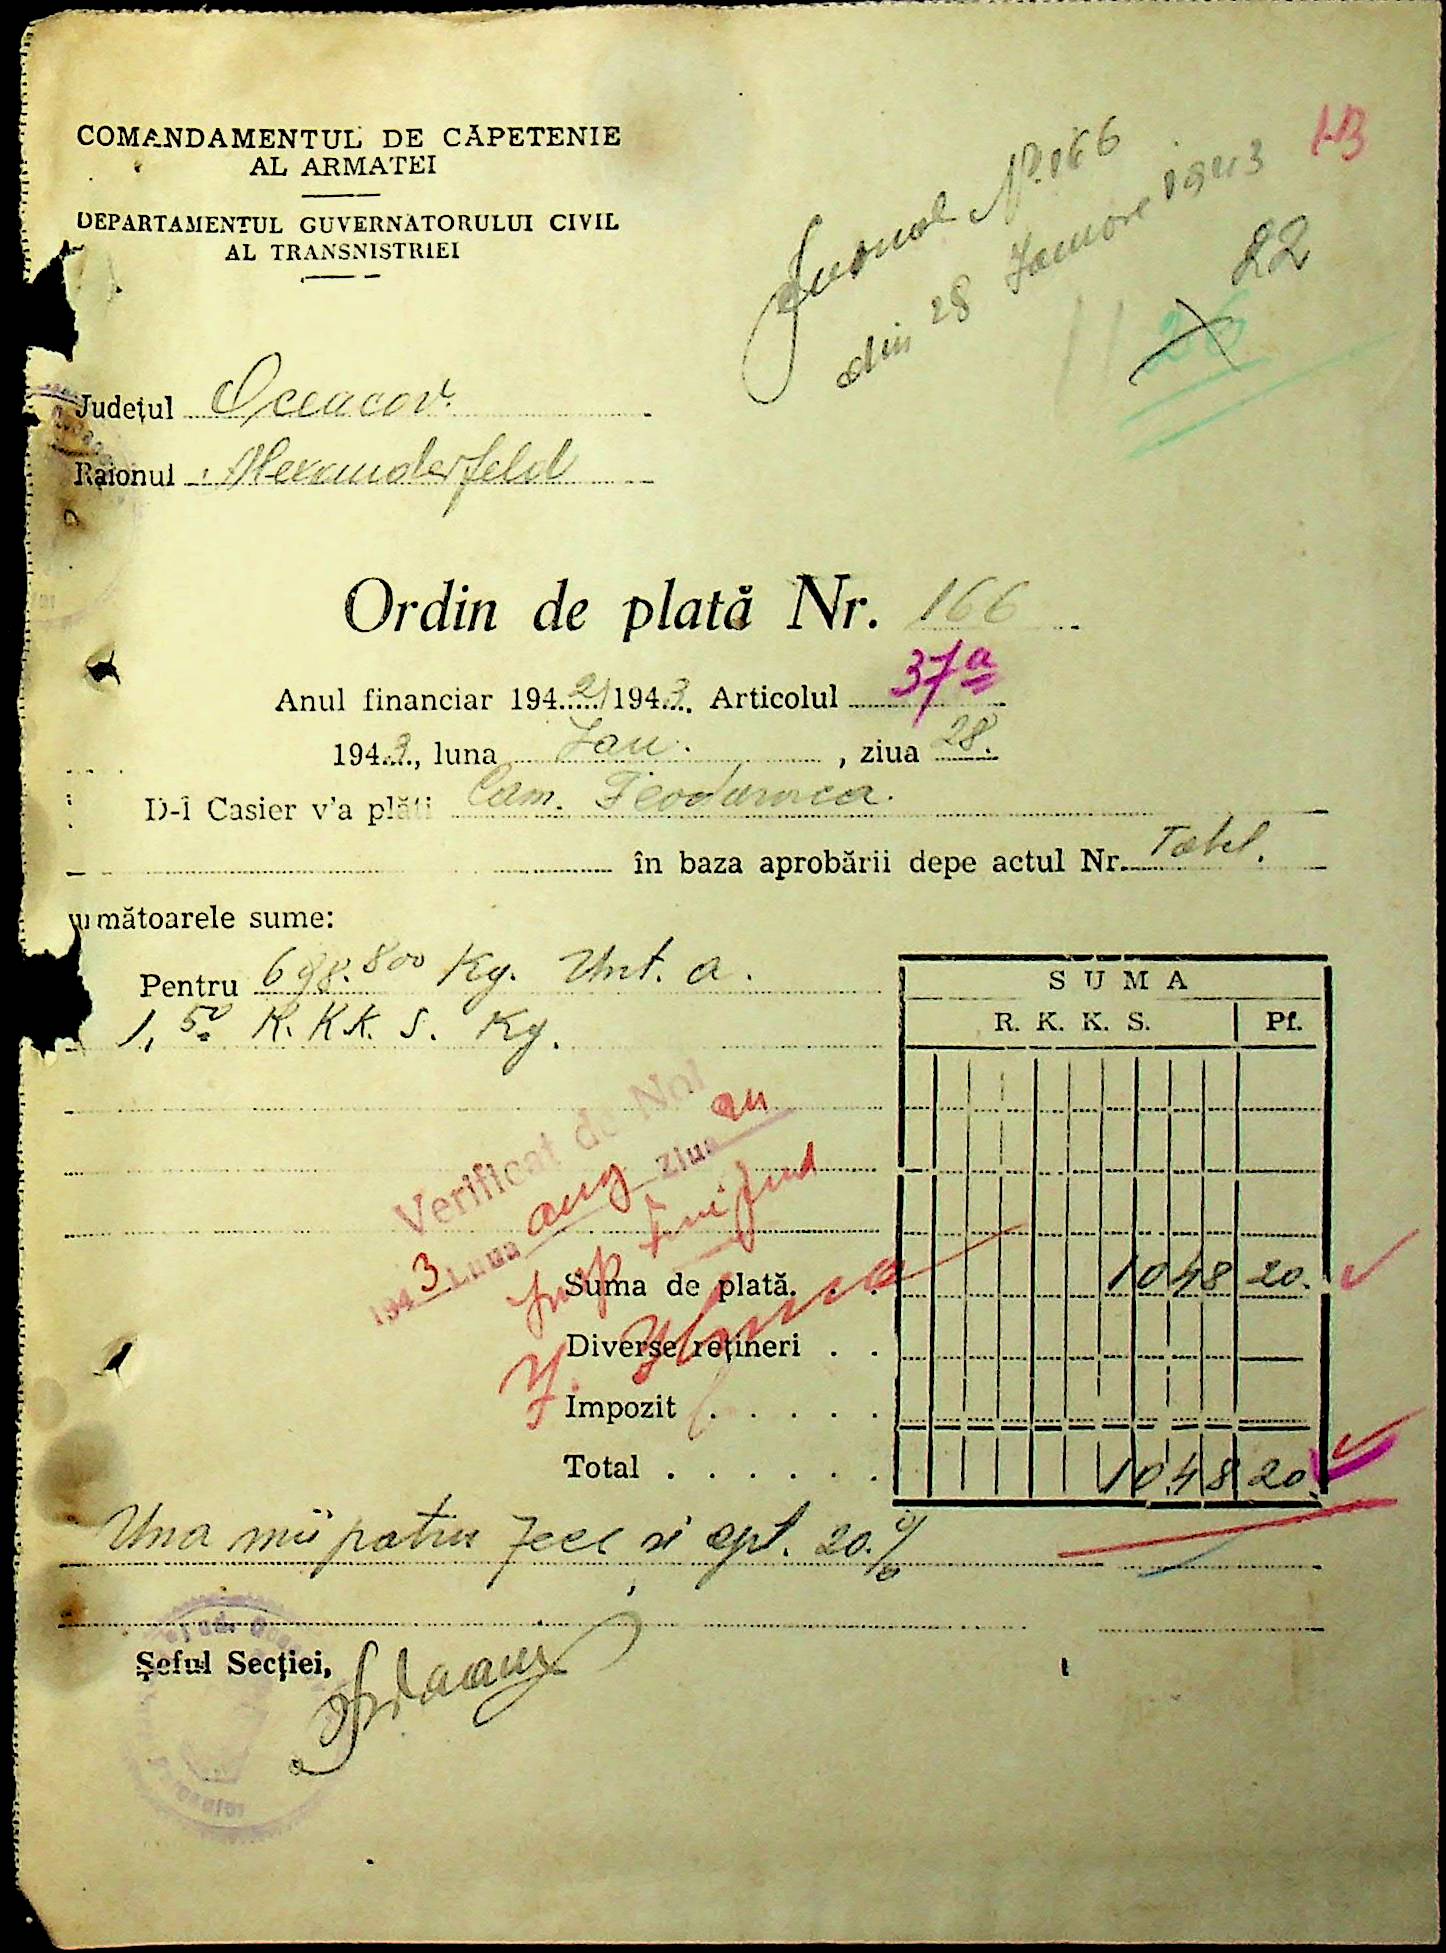 COMANDAMENTUL DE CĂPETENIE
AL ARMATEI
DEPARTAMENTUL GUVERNĂTORULUI CIVIL
AL TRANSNISTRIEI
Jurnal No. 166
din 28 Januare 1943
13
22
26
Județul Oceacov.
Raionul Alexanderfeld
Ordin de plată Nr. 166
Anul financiar 1942/1943. Articolul 37a
1943, luna Jan. , ziua 28.
D-l Casier v'a plăti Cam. Teodorovca.
în baza aprobării depe actul Nr. Tabl.
următoarele sume:
Pentru 698.800 Kg. Unt. a.
1,50 R.K.K.S. Kg.
SUMA
R. K. K. S. Pf.
Verificat de Noi
1943 Luna aug Ziua
Suma de plată. . . 1048 20.
Diverse rețineri . .
Impozit . . . . .
Total . . . . . . 1048 20.
Una mii patru zeci si opt. 20.%
Șeful Secției,